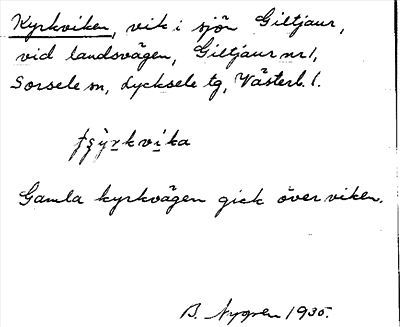 Kyrkviken, vik i sjön Giltjaur,
vid landsvägen, Giltjaur nr 1,
Sorsele sn, Lycksele tg, Västerb. l.
Gamla kyrkvägen gick över viken.
B. Nygren 1935.